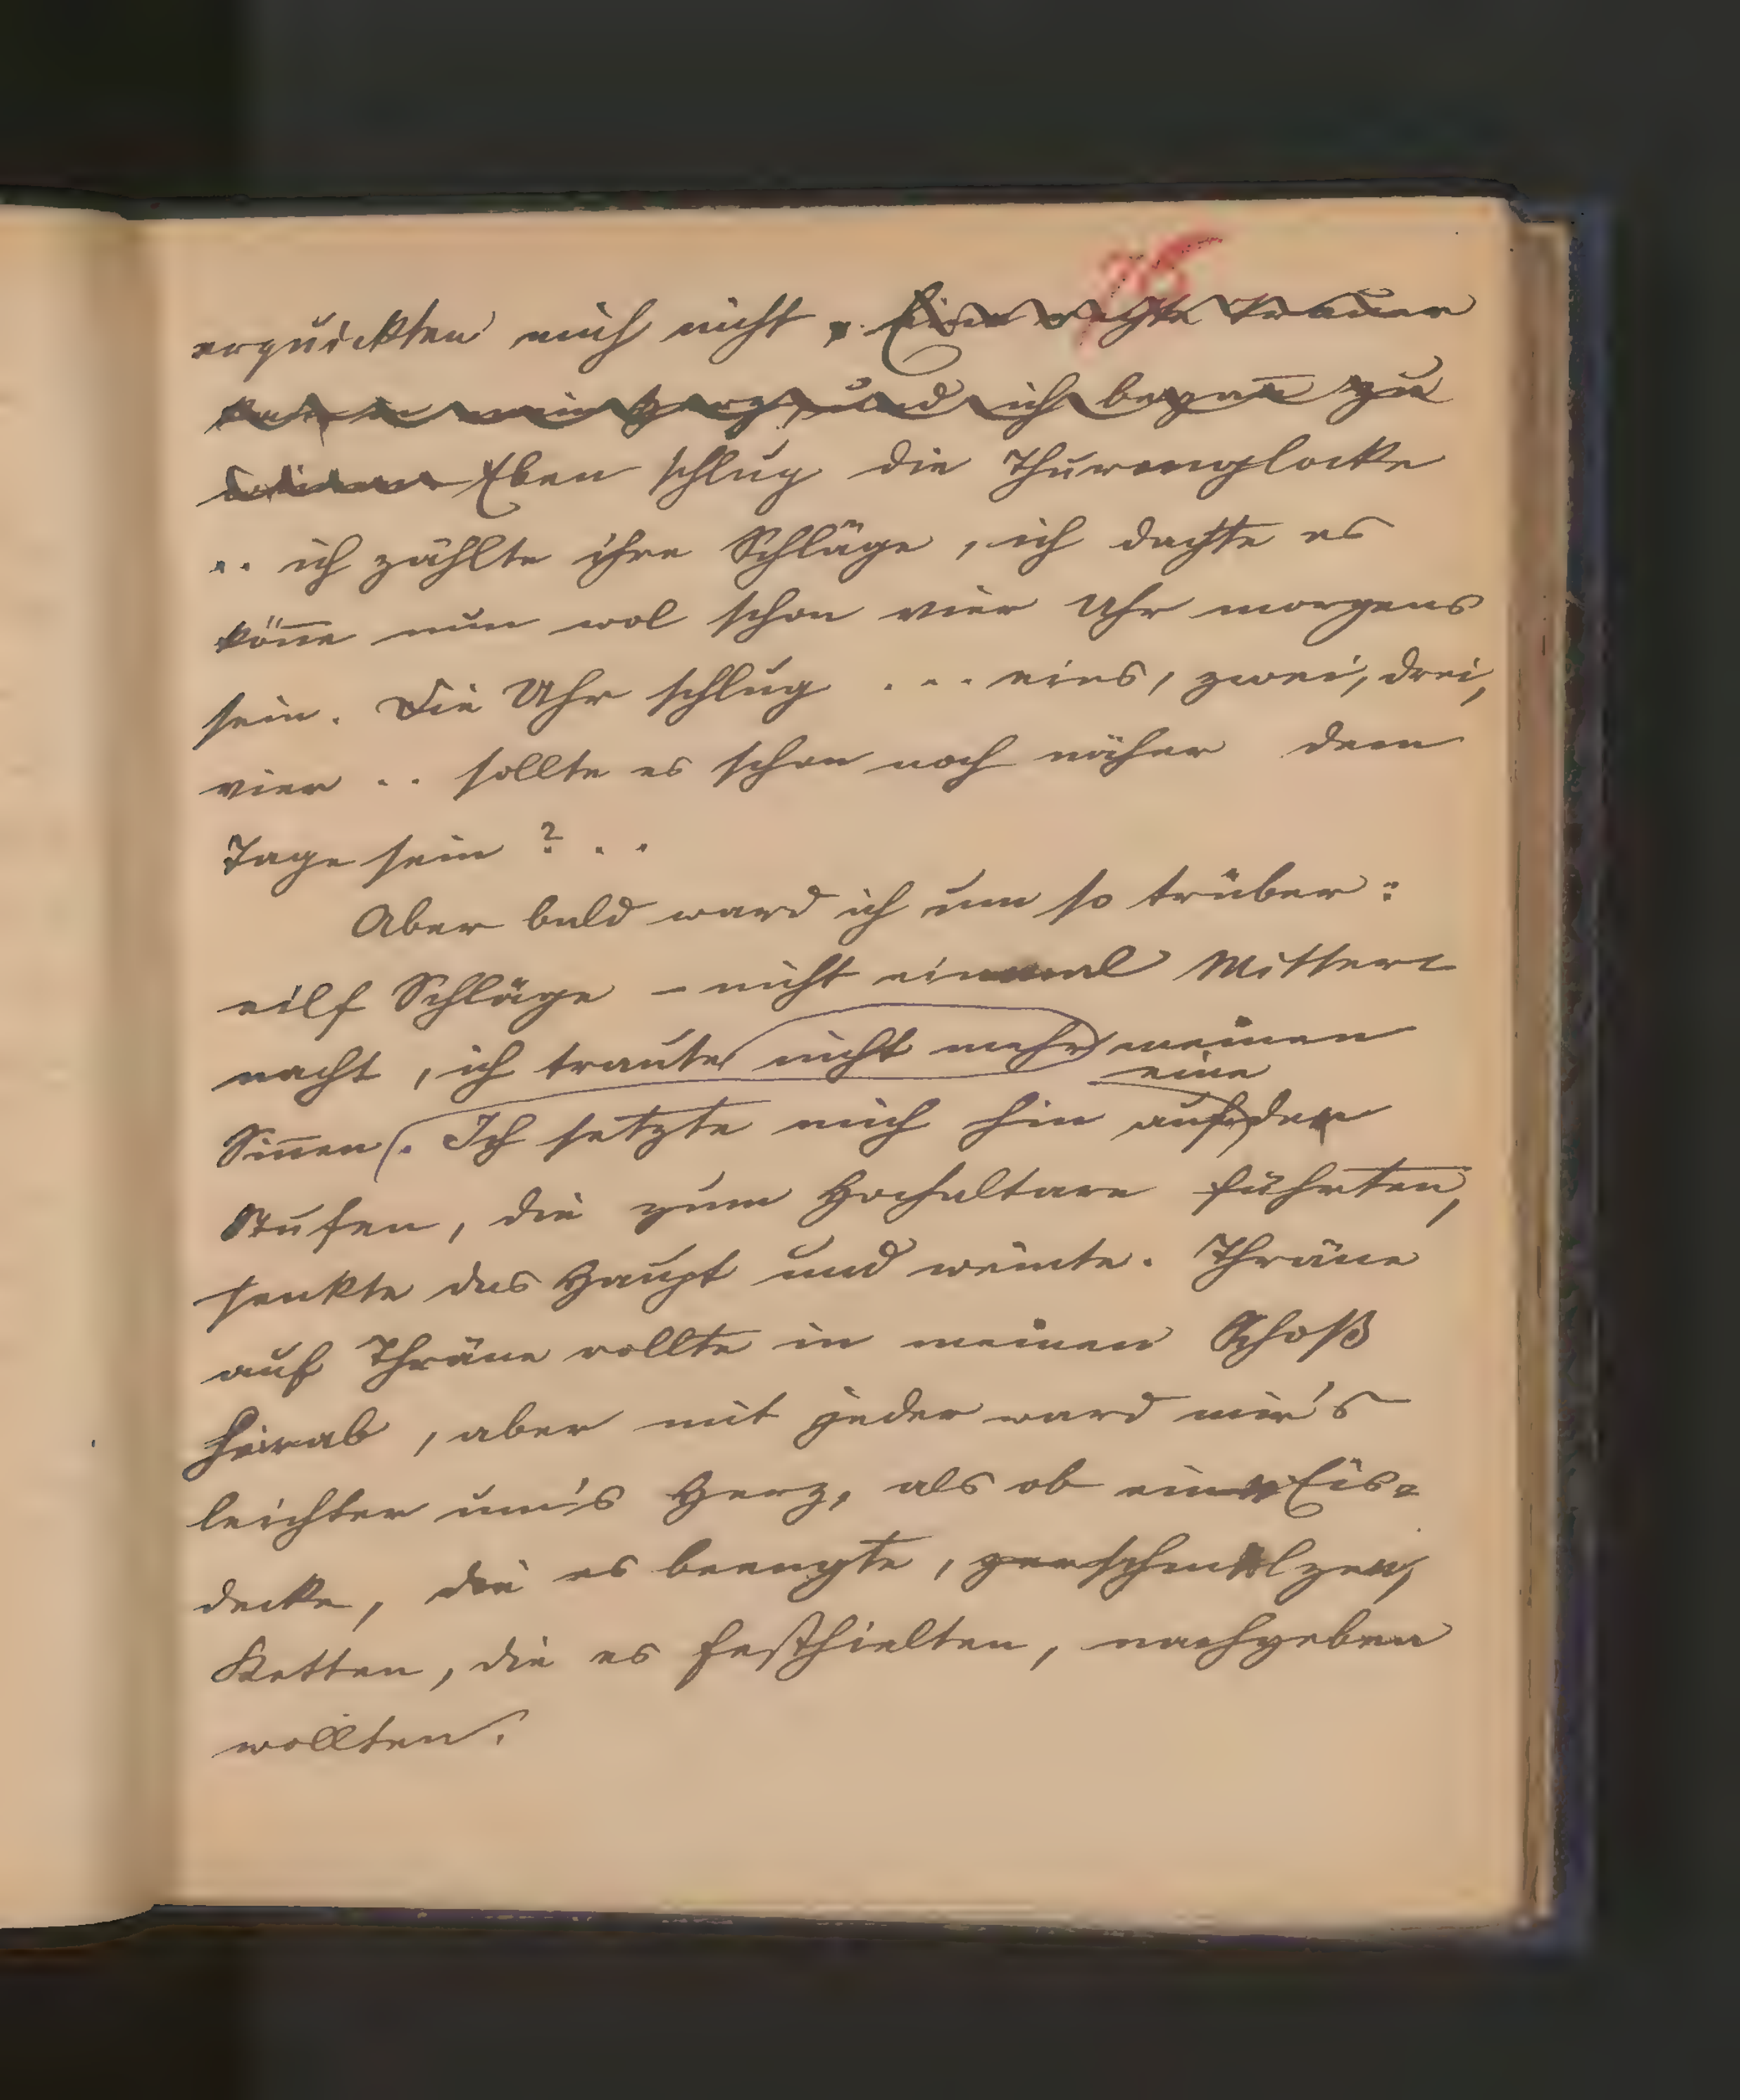 76
erquickten mich nicht. Eine rechte Trauer
kam in mein Herz, und ich began̄ zu
Eben schlug die Thurmglocke
.. ich zählte ihre Schläge, ich dachte es
kön̄e nun wol schon vier Uhr morgens
sein. Die Uhr schlug ... eins, zwei, drei,
vier .. sollte es schon noch näher dem
Tage sein? ..
Aber bald ward ich um so trüber:
eilf Schläge – nicht einmal Mitter-
nacht, ich traute nicht mehr meinen
eine
Sin̄en. Ich setzte mich hin auf der
Stufen, die zum Hochaltare führten,
senkte das Haupt und weinte. Thräne
auf Thräne rollte in meinen Schoß
herab, aber mit jeder ward mir's
leichter um's Herz, als ob eine Eis-
decke, die es beengte, zerschmelzen,
Ketten, die es festhielten, nachgeben
wollten.